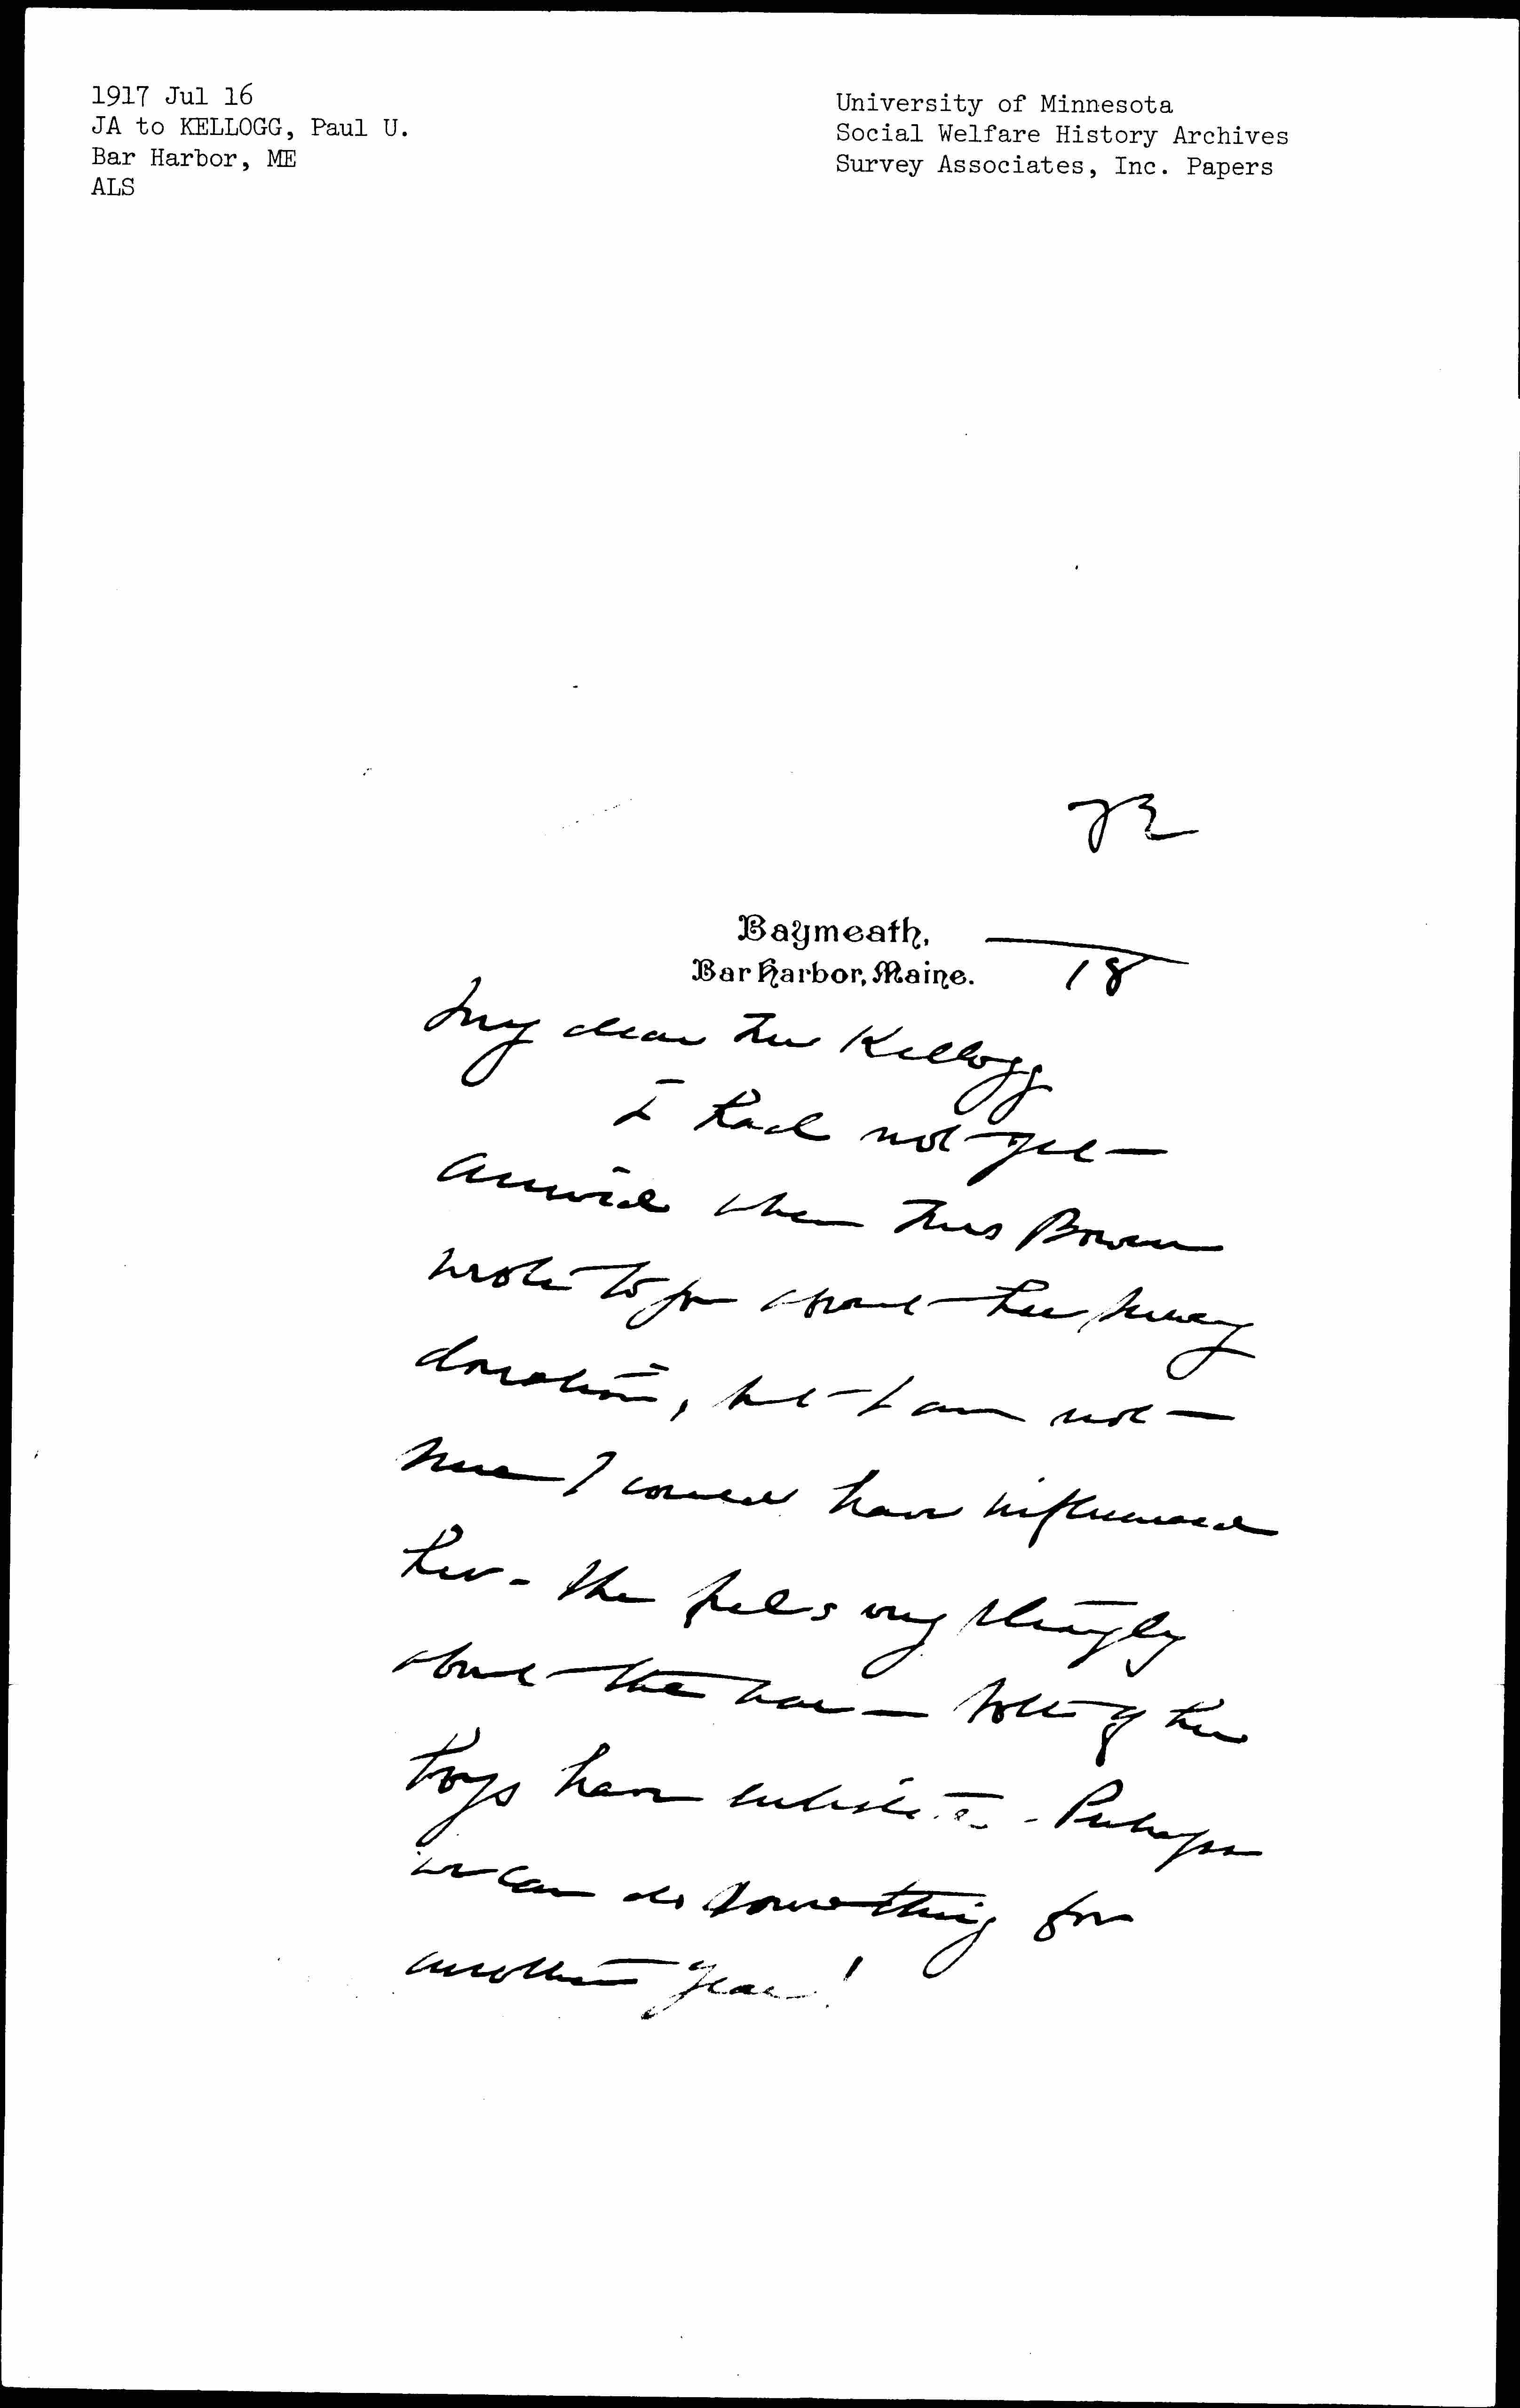 1917 Jul 16
JA to KELLOGG, Paul U.
Bar Harbor, ME
ALS
University of Minnesota
Social Welfare History Archives
Survey Associates, Inc. Papers
Baymeath,
Bar Harbor, Maine.
18
My dear Mr Kellogg
I had not yet
arrived when Mrs Bowen
wrote to you about her Survey
donation, but I am not
sure I could have influenced
her - She feels very strongly
about the war - both of her
boys have enlisted - Perhaps
we can do something for
another year!